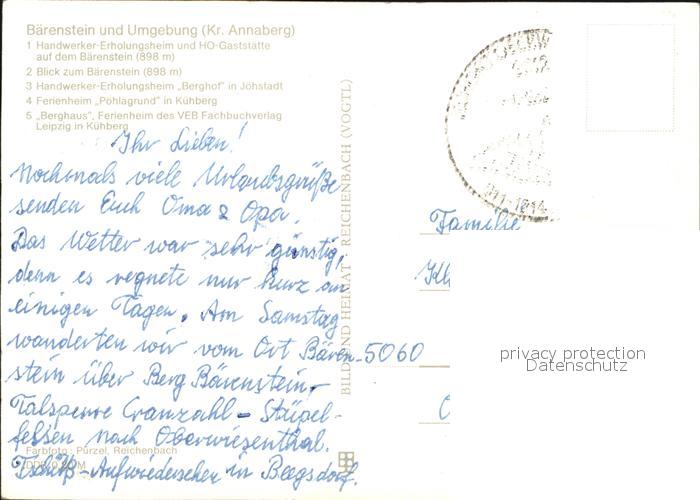 Bärenstein und Umgebung (Kr. Annaberg)
1 Handwerker-Erholungsheim und HO-Gaststätte
auf dem Bärenstein (898 m)
2 Blick zum Bärenstein (898 m)
3 Handwerker-Erholungsheim „Berghof" in Jöhstadt
4 Ferienheim „Pöhlagrund" in Kühberg
5 „Berghaus", Ferienheim des VEB Fachbuchverlag
Leipzig in Kühberg
Ihr Lieben!
Nochmals viele Urlaubsgrüße
senden Euch Oma & Opa.
Das Wetter war sehr günstig,
denn es regnete nur kurz an
einigen Tagen. Am Samstag
wanderten wir vom Ort Bären-
stein über Berg Bärenstein,
Talsperre Cranzahl - Stüpel-
fessen nach Oberwiesenthal.
Tschüß - Aufwiedersehen in Bagsdorf.
Farbfoto: Pürzel, Reichenbach
BILD UND HEIMAT REICHENBACH (VOGTL)
Familie
5060
privacy protection
Datenschutz